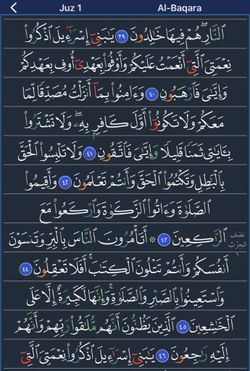 Juz 1 Al-Baqara
ٱلنَّارِ ۖ هُمْ فِيهَا خَـٰلِدُونَ ٣٩ يَـٰبَنِىٓ إِسْرَٰٓءِيلَ ٱذْكُرُوا۟
نِعْمَتِىَ ٱلَّتِىٓ أَنْعَمْتُ عَلَيْكُمْ وَأَوْفُوا۟ بِعَهْدِىٓ أُوفِ بِعَهْدِكُمْ
وَإِيَّـٰىَ فَٱرْهَبُونِ ٤٠ وَءَامِنُوا۟ بِمَآ أَنزَلْتُ مُصَدِّقًا لِّمَا
مَعَكُمْ وَلَا تَكُونُوٓا۟ أَوَّلَ كَافِرٍۭ بِهِۦ ۖ وَلَا تَشْتَرُوا۟
بِـَٔايَـٰتِى ثَمَنًا قَلِيلًا وَإِيَّـٰىَ فَٱتَّقُونِ ٤١ وَلَا تَلْبِسُوا۟ ٱلْحَقَّ
بِٱلْبَـٰطِلِ وَتَكْتُمُوا۟ ٱلْحَقَّ وَأَنتُمْ تَعْلَمُونَ ٤٢ وَأَقِيمُوا۟
ٱلصَّلَوٰةَ وَءَاتُوا۟ ٱلزَّكَوٰةَ وَٱرْكَعُوا۟ مَعَ
ٱلرَّٰكِعِينَ ٤٣ ۞ أَتَأْمُرُونَ ٱلنَّاسَ بِٱلْبِرِّ وَتَنسَوْنَ نصف الحزب
أَنفُسَكُمْ وَأَنتُمْ تَتْلُونَ ٱلْكِتَـٰبَ ۚ أَفَلَا تَعْقِلُونَ ٤٤
وَٱسْتَعِينُوا۟ بِٱلصَّبْرِ وَٱلصَّلَوٰةِ ۚ وَإِنَّهَا لَكَبِيرَةٌ إِلَّا عَلَى
ٱلْخَـٰشِعِينَ ٤٥ ٱلَّذِينَ يَظُنُّونَ أَنَّهُم مُّلَـٰقُوا۟ رَبِّهِمْ وَأَنَّهُمْ
إِلَيْهِ رَٰجِعُونَ ٤٦ يَـٰبَنِىٓ إِسْرَٰٓءِيلَ ٱذْكُرُوا۟ نِعْمَتِىَ ٱلَّتِىٓ